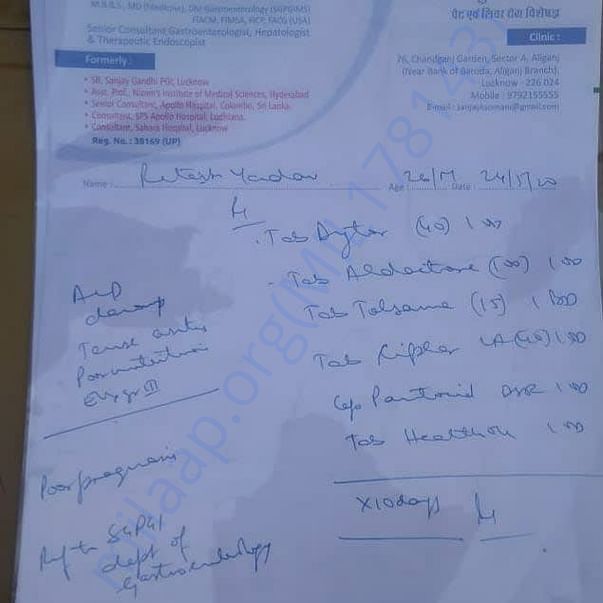 M.B.B.S., MD (Medicine), DM Gastroenterology (SGPGIMS)
FACM, FIMSA, FICP, FACG (USA)
Senior Consultant Gastroenterologist, Hepatologist
& Therapeutic Endoscopist
पेट एवं लिवर रोग विशेषज्ञ
Formerly :
• SR, Sanjay Gandhi PGI, Lucknow
• Asst. Prof., Nizam's Institute of Medical Sciences, Hyderabad
• Senior Consultant, Apollo Hospital, Colombo, Sri Lanka.
• Consultant, SPS Apollo Hospital, Ludhiana.
• Consultant, Sahara Hospital, Lucknow
Reg. No.: 38169 (UP)
Clinic :
26, Chandganj Garden, Sector A, Aliganj
(Near Bank of Baroda, Aliganj Branch),
Lucknow - 226 024
Mobile : 9792155555
Name : Ritesh Yadav Age : 26/M Date : 24/5/20
Tab Dytor (40) 1 OD
Tab Aldactone (100) 1 OD
Tab (15) 1
Tab LA (40) 1 OD
Cap DSR 1 OD
Tab 1 OD
x 10 days
Tense
Poor
Poor prognosis
Ref to SGPGI
dept of
Gastroenterology
milaap.org